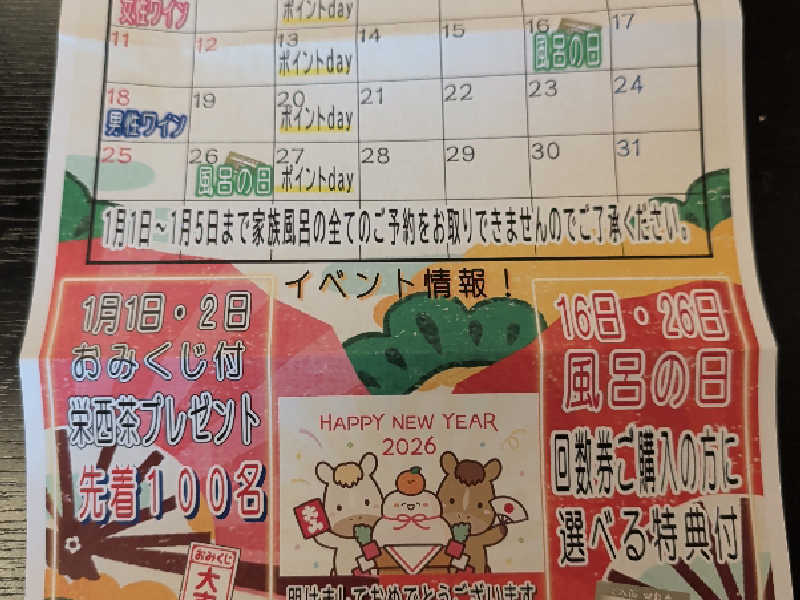 女性ワイン
ポイントday
11 12 13 14 15 16 17
ポイントday 風呂の日
18 19 20 21 22 23 24
男性ワイン ポイントday
25 26 27 28 29 30 31
風呂の日 ポイントday
1月1日～1月5日まで家族風呂の全てのご予約をお取りできませんのでご了承ください。
イベント情報！
1月1日・2日
おみくじ付
栄西茶プレゼント
先着100名
HAPPY NEW YEAR
2026
明けましておめでとうございます
おみくじ
16日・26日
風呂の日
回数券ご購入の方に
選べる特典付